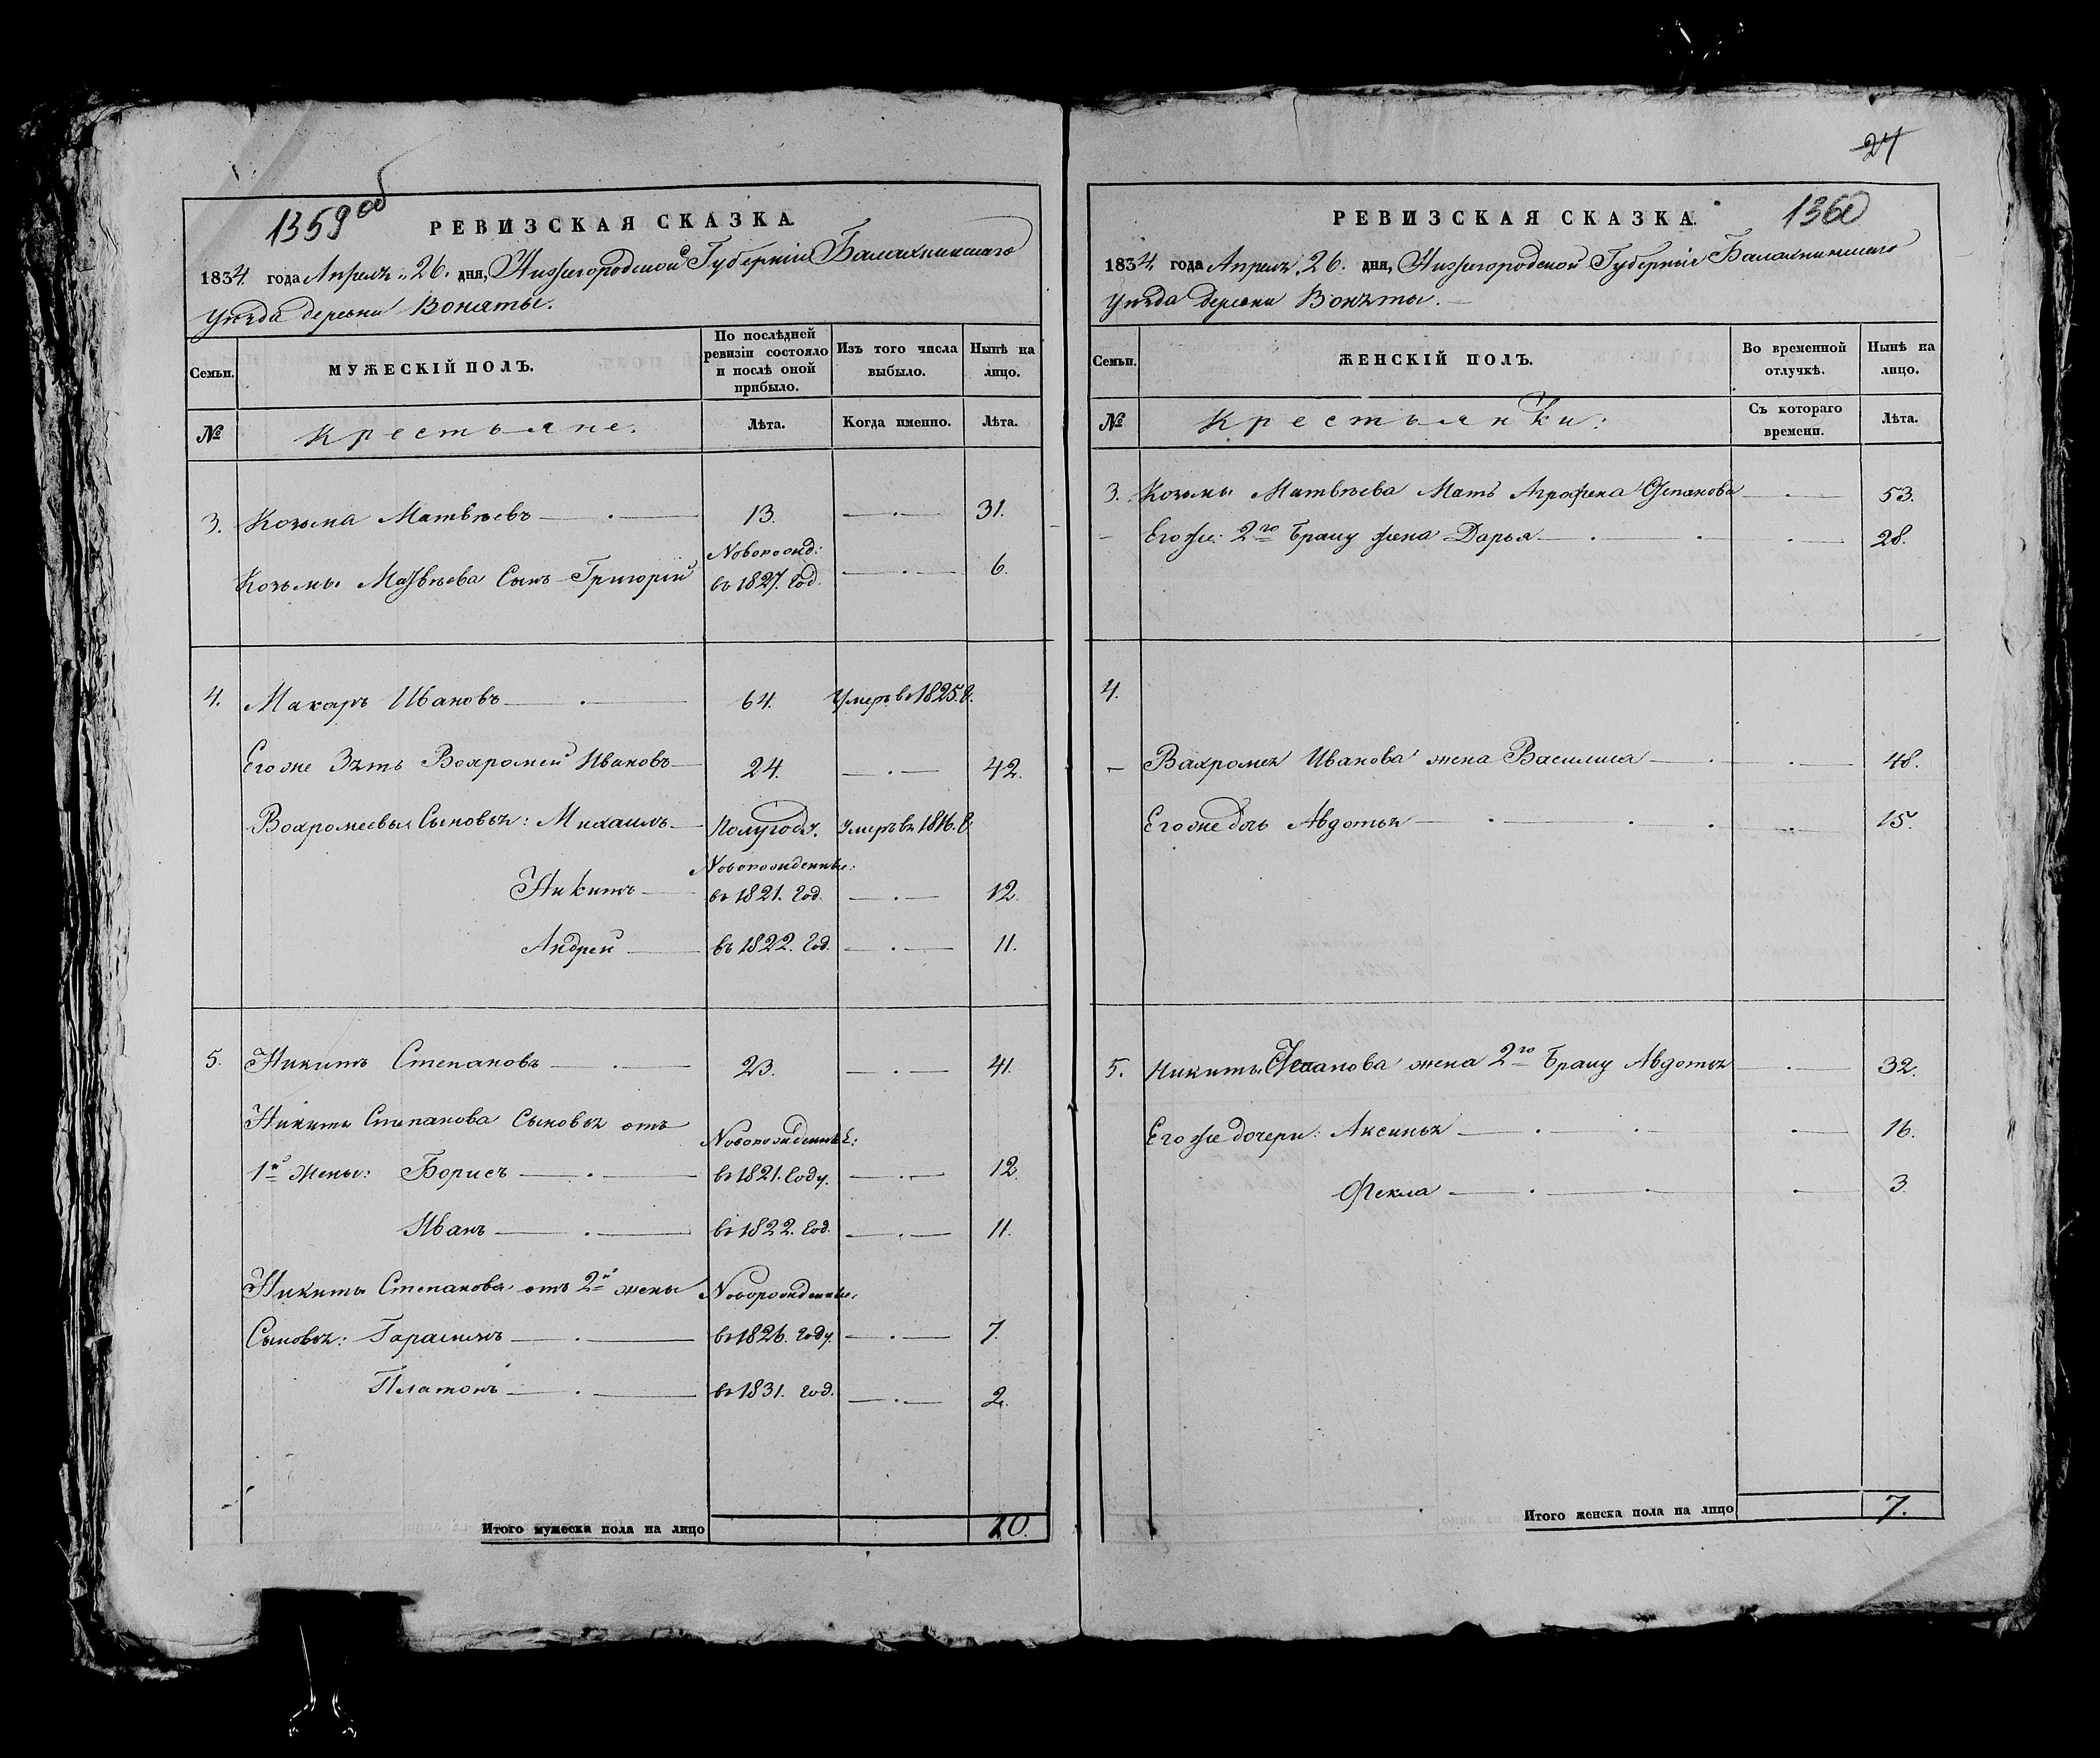 1359 об
РЕВИЗСКАЯ СКАЗКА.
1834 года Апреля 26. дня, Нижегородской Губернии Балахнинскаго
Уезда деревни
Семьи.
МУЖЕСКІЙ ПОЛЪ.
По послѣдней ревизіи состояло и послѣ оной прибыло.
Изъ того числа выбыло.
Нынѣ на лицо.
№
Крестьяне.
Лѣта.
Когда именно.
Лѣта.
3. Козьма Матвѣевъ 13. 31.
Новорожд:
Козьмы Матвѣева Сынъ Григорій въ 1827. год. 6.
4. Макаръ Ивановъ 64. Умеръ в 1825. г.
Егоже Зять Вахромей Ивановъ 24. 42.
Вахромеевы Сыновья: Михаилъ Полугоду. Умеръ въ 1816. г
Новорожденные:
Никита въ 1821. год. 12.
Андрей въ 1822. год. 11.
5. Никита Степановъ 23. 41.
Никиты Степанова Сыновья отъ Новорожденные:
1й Жены: Борисъ въ 1821. году. 12.
Иванъ въ 1822. год. 11.
Никиты Степанова отъ 2й жены Новорожденные:
Сыновья: Гарасимъ въ 1826. году. 7.
Платонъ въ 1831. год. 2.
Итого мужеска пола на лицо 10.
24
1360
РЕВИЗСКАЯ СКАЗКА.
1834 года Апреля 26. дня, Нижегородской Губерніи Балахнинскаго
Уезда деревни
Семьи.
ЖЕНСКІЙ ПОЛЪ.
Во временной отлучкѣ.
Нынѣ на лицо.
№
Крестьянки:
Съ котораго времени.
Лѣта.
3. Козьмы Матвѣева Мать Аграфена Степанова 53.
Егоже: 2го браку жена Дарья 28.
4.
Вахромея Иванова жена Василиса 48.
Егоже дочь Авдотья 15.
5. Никиты Степанова жена 2го браку Авдотья 32.
Егоже дочери: Аксинья 16.
Фекла 3.
Итого женска пола на лицо 7.